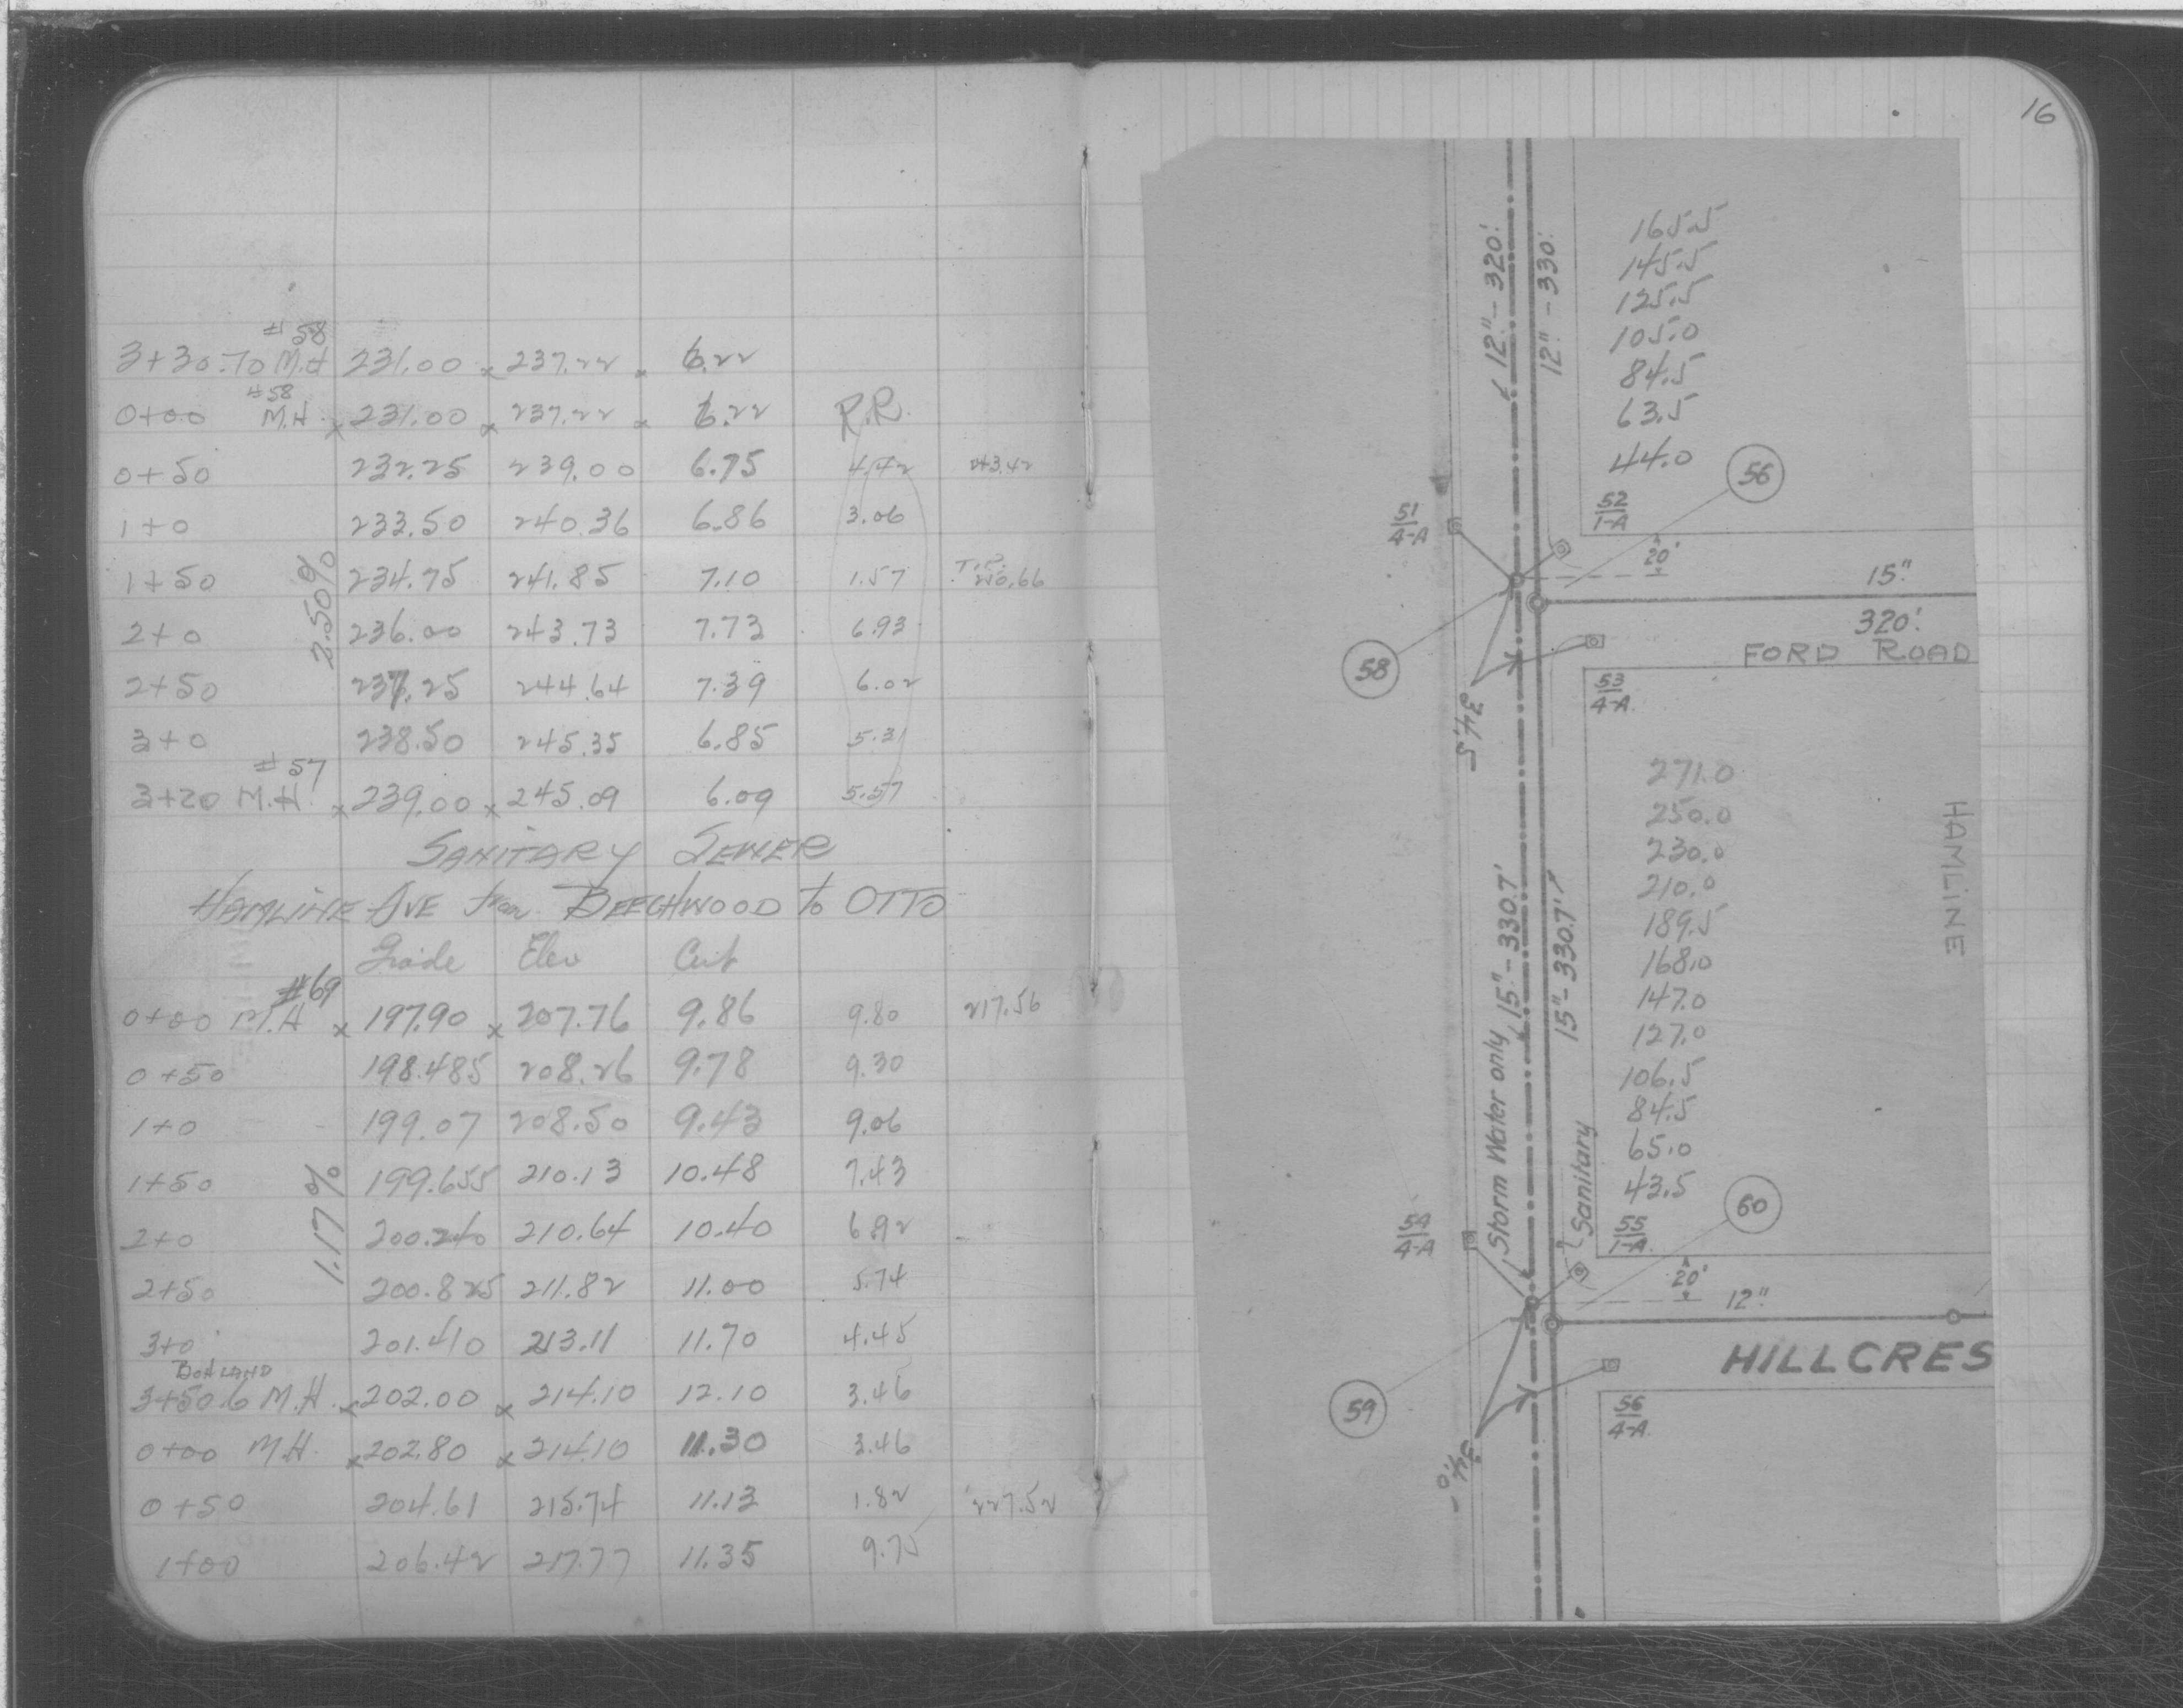 16
#58
3+30.70 M.H 231.00 x 237.22 x 6.22
#58
0+00 M.H. x 231.00 x 237.22 x 6.22 R.R.
0+50 232.25 239.00 6.75 4.42 243.42
1+0 233.50 240.36 6.86 3.06
1+50 234.75 241.85 7.10 1.57 T.P. 250.66
2.50%
2+0 236.00 243.73 7.73 6.93
2+50 237.25 244.64 7.39 6.02
3+0 238.50 245.35 6.85 5.31
#57
3+20 M.H. x 239.00 x 245.09 6.09 5.57
SANITARY SEWER
HAMLINE AVE from BEECHWOOD to OTTO
Grade Elev Cut
#69
0+00 M.H x 197.90 x 207.76 9.86 9.80 217.56
0+50 198.485 208.26 9.78 9.30
1+0 199.07 208.50 9.43 9.06
1+50 199.655 210.13 10.48 7.43
1.17%
2+0 200.240 210.64 10.40 6.92
2+50 200.825 211.82 11.00 5.74
3+0 201.410 213.11 11.70 4.45
3+50.6 M.H. x 202.00 x 214.10 12.10 3.46
0+00 M.H. x 202.80 x 214.10 11.30 3.46
0+50 204.61 215.74 11.13 1.82 227.52
1+00 206.42 217.77 11.35 9.75
12"-320'.
12"-330'.
165.5
145.5
125.5
105.0
84.5
63.5
44.0
56
51
4-A
52
1-A
20'
15"
320'.
FORD ROAD
58
53
4-A
34.5
271.0
250.0
230.0
210.0
189.5
168.0
147.0
127.0
106.5
84.5
65.0
43.5
HAMLINE
Storm Water only, 15"-330.7'
15"-330.7'
Sanitary
60
54
4-A
55
1-A
20'
12"
HILLCRES
59
56
4-A